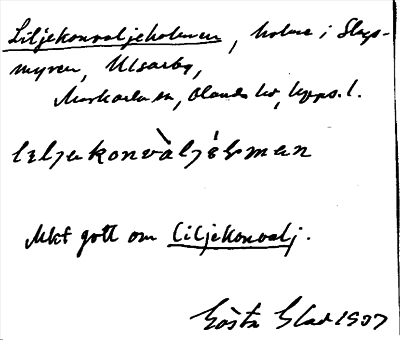 Liljekonvaljeholmen, holme i Slags-
myren, Ulsarby,
Morkarla sn, Olands hd, Upps. l.
lıljekonvàljéhman
Mkt gott om liljekonvalj.
Gösta Glad 1907